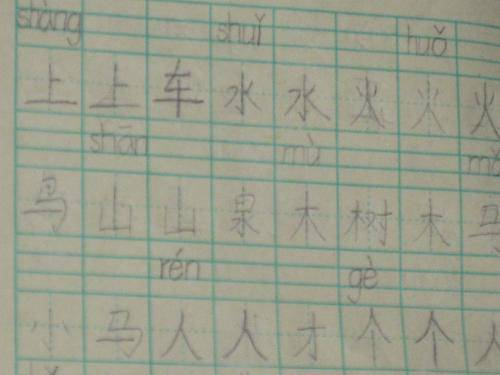 shàng shuǐ huǒ
上 上 车 水 水 火 火 火
shān mù mǎ
鸟 山 山 泉 木 树 木 马
rén gè
小 马 人 人 才 个 个 人